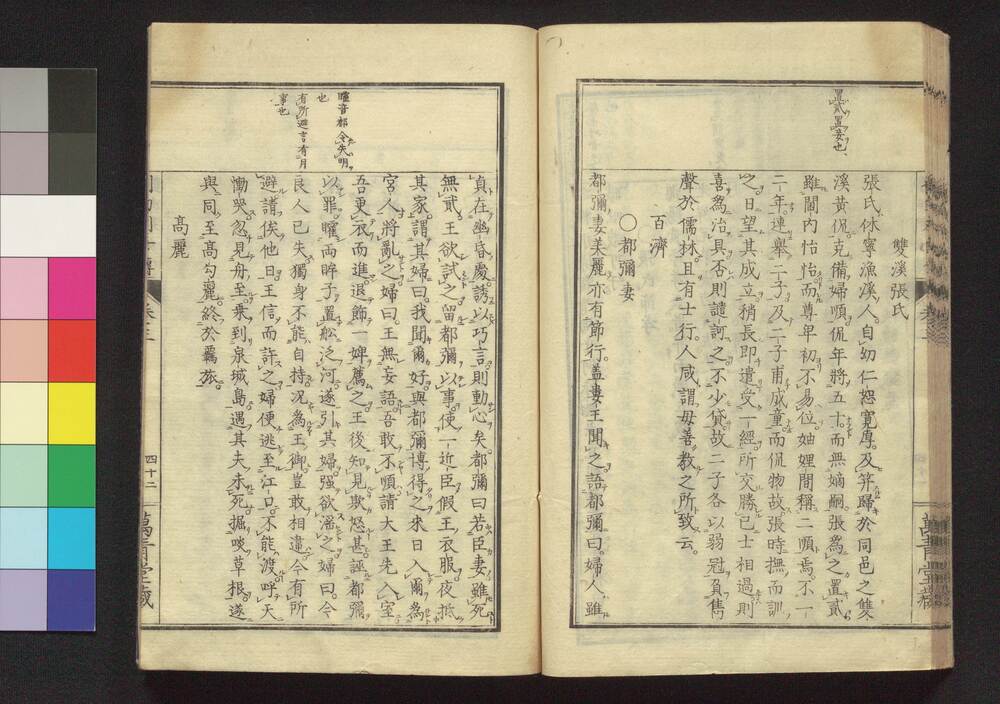 置貳置妾也
雙溪張氏
張氏休寧漁溪人自幼仁恕寬厚及笄歸於同邑之雙
溪黃侃克備婦順侃年將五十而無嫡嗣張為之置貳
雖閫內怡怡而尊卑初不易位妯娌間稱二順焉不一
二年連舉二子及二子甫成童而侃物故張時撫而訓
之日望其成立稍長即遣受一經所交勝己士相過則
喜為治具否則譴訶之不少貸故二子各以弱冠負雋
聲於儒林且有士行人咸謂毋善教之所致云
百濟
○都彌妻
都彌妻美麗亦有節行蓋婁王聞之語都彌曰婦人雖
矐音郝令失明
也
有所避言有月
事也
貞在幽昏處誘以巧言則動心矣都彌曰若臣妻雖死
無貳王欲試之留都彌以事使一近臣假王衣服夜抵
其家謂其婦曰我聞爾好與都彌博得之來日入爾為
宮人將亂之婦曰王無妄語吾敢不順請大王先入室
吾更衣而進退飾一婢薦之王後知見欺怒甚誣都彌
以罪矐兩眸子置舩泛河遂引其婦强欲滛之婦曰今
良人已失獨身不能自持況為王御豈敢相違今有所
避請俟他日王信而許之婦便逃至江口不能渡呼天
慟哭忽見舟至乘到泉城島遇其夫未死掘啖草根遂
與同至高勾麗終於羈旅
高麗
四十二
萬青堂藏